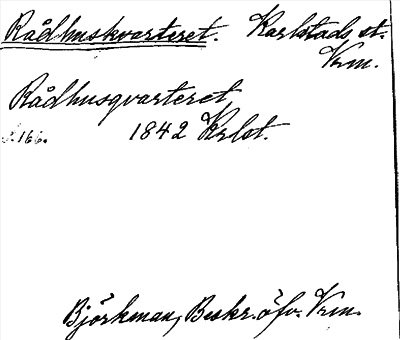 Rådhuskvarteret. Karlstads st.
Vrm.
Rådhusqvarteret
s. 166. 1842 Krlst.
Björkman, Beskr. öfv. Vrm.